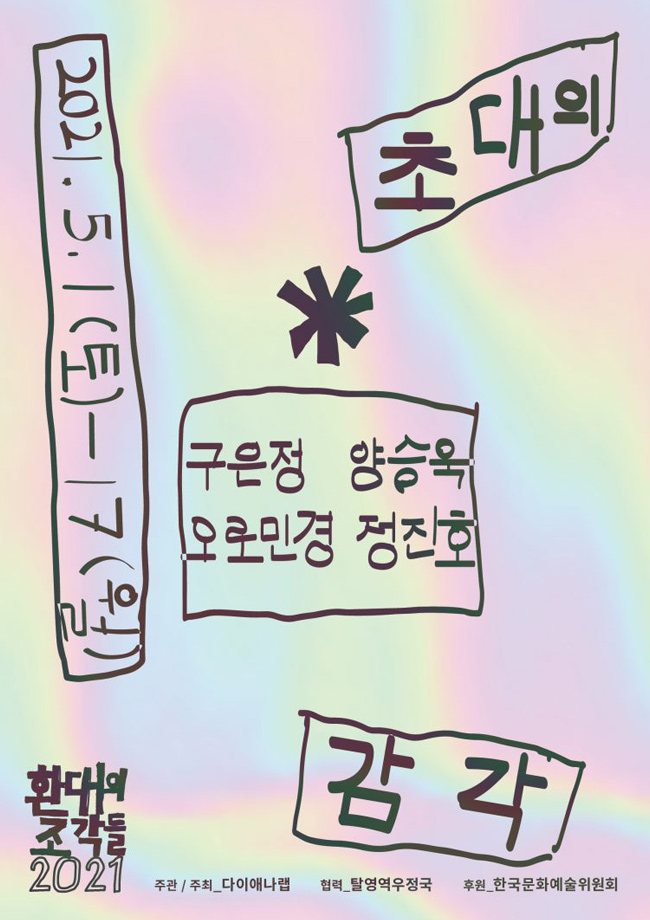 2021. 5. 1 (토) — 17 (월)
초대의
*
구은정 양승욱
오로민경 정진호
감각
환대의
조각들
2021
주관 / 주최_다이애나랩 협력_탈영역우정국 후원_한국문화예술위원회